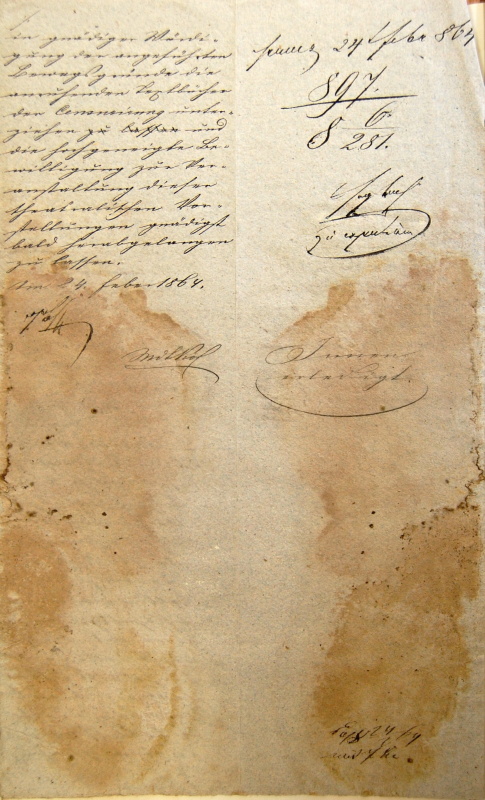 In gnädiger Würdi-
gung der angeführten
Beweggründe die
anruhenden Textbücher
der Censurirung unter-
ziehen zu lassen und
die hochgeneigte Be-
willigung zur Ver-
anstaltung dieser
theatralischen Vor-
stellungen gnädigst
bald herabgelangen
zu lassen.
Am 24. Feber 1864.
24 Feber 864
897.
6.
8 281.
zu expediren
Innen
erledigt.
24